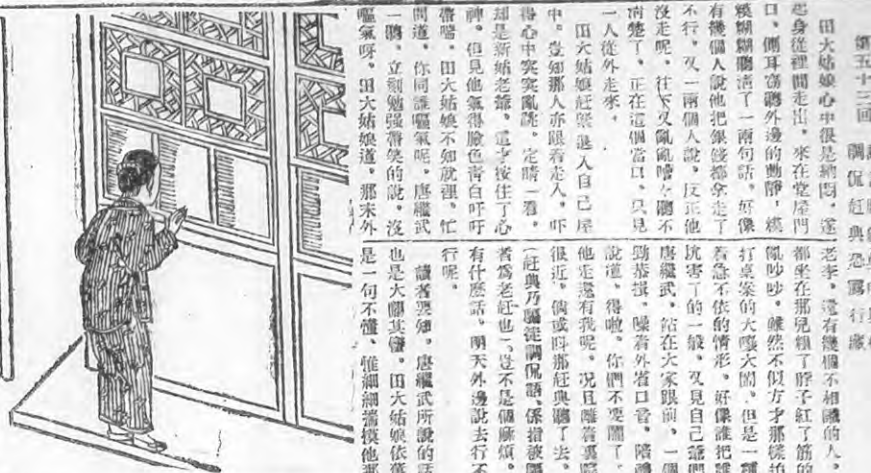 第五十三回
調侃赶典恐露行藏
田大姑娘心中很是納悶。遂
起身從裡間走出。來在堂屋門
口。側耳竊聽外邊的動靜。模
模糊糊聽清了一兩句話。好像
有幾個人說他把銀錢都拿走了
不行。又一兩個人說。反正他
沒走呢。往下又亂亂嘈々聽不
清楚了。正在這個當口。只見
一人從外走來。
田大姑娘赶緊退入自己屋
中。豈知那人亦跟着走入。吓
得心中突突亂跳。定睛一看。
却是新姑老爺。這才按住了心
神。但見他氣得臉色青白吁吁
帶喘。田大姑娘不知就裡。忙
問道。你同誰嘔氣呢。唐繼武
一聽。立刻勉强帶笑的說。沒
嘔氣呀。田大姑娘道。那末外
老李。還有幾個不相識的人。
都坐在那兒粗了脖子紅了筋的
亂吵吵。雖然不似方才那樣拍
打桌案的大嚷大鬧。但是一種
着急不依的情形。好像誰把誰
坑害了的一般。又見自己爺們
唐繼武。站在大家跟前。一個
勁恭揖。噪着外省口音。陪
說道。得啦。你們不要鬧了。
他走還有我呢。况且離着裏
很近。倘或叫那赶典聽了去。
（赶典乃騙徒調侃語。係指被騙
者爲老赶也）。豈不是個麻煩。
有什麽話。明天外邊說去行不
行呢。
讀者要知。唐繼武所說的話
也是大願其懂。田大姑娘依舊
是一句不懂。惟細細揣摸他那